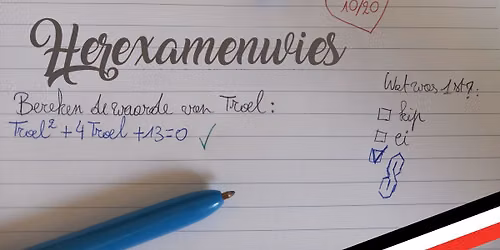 10/20
Herexamenwies
Bereken de waarde van Troel:
Troel² + 4 Troel + 13 = 0
Wat was 1st?:
kip
ei